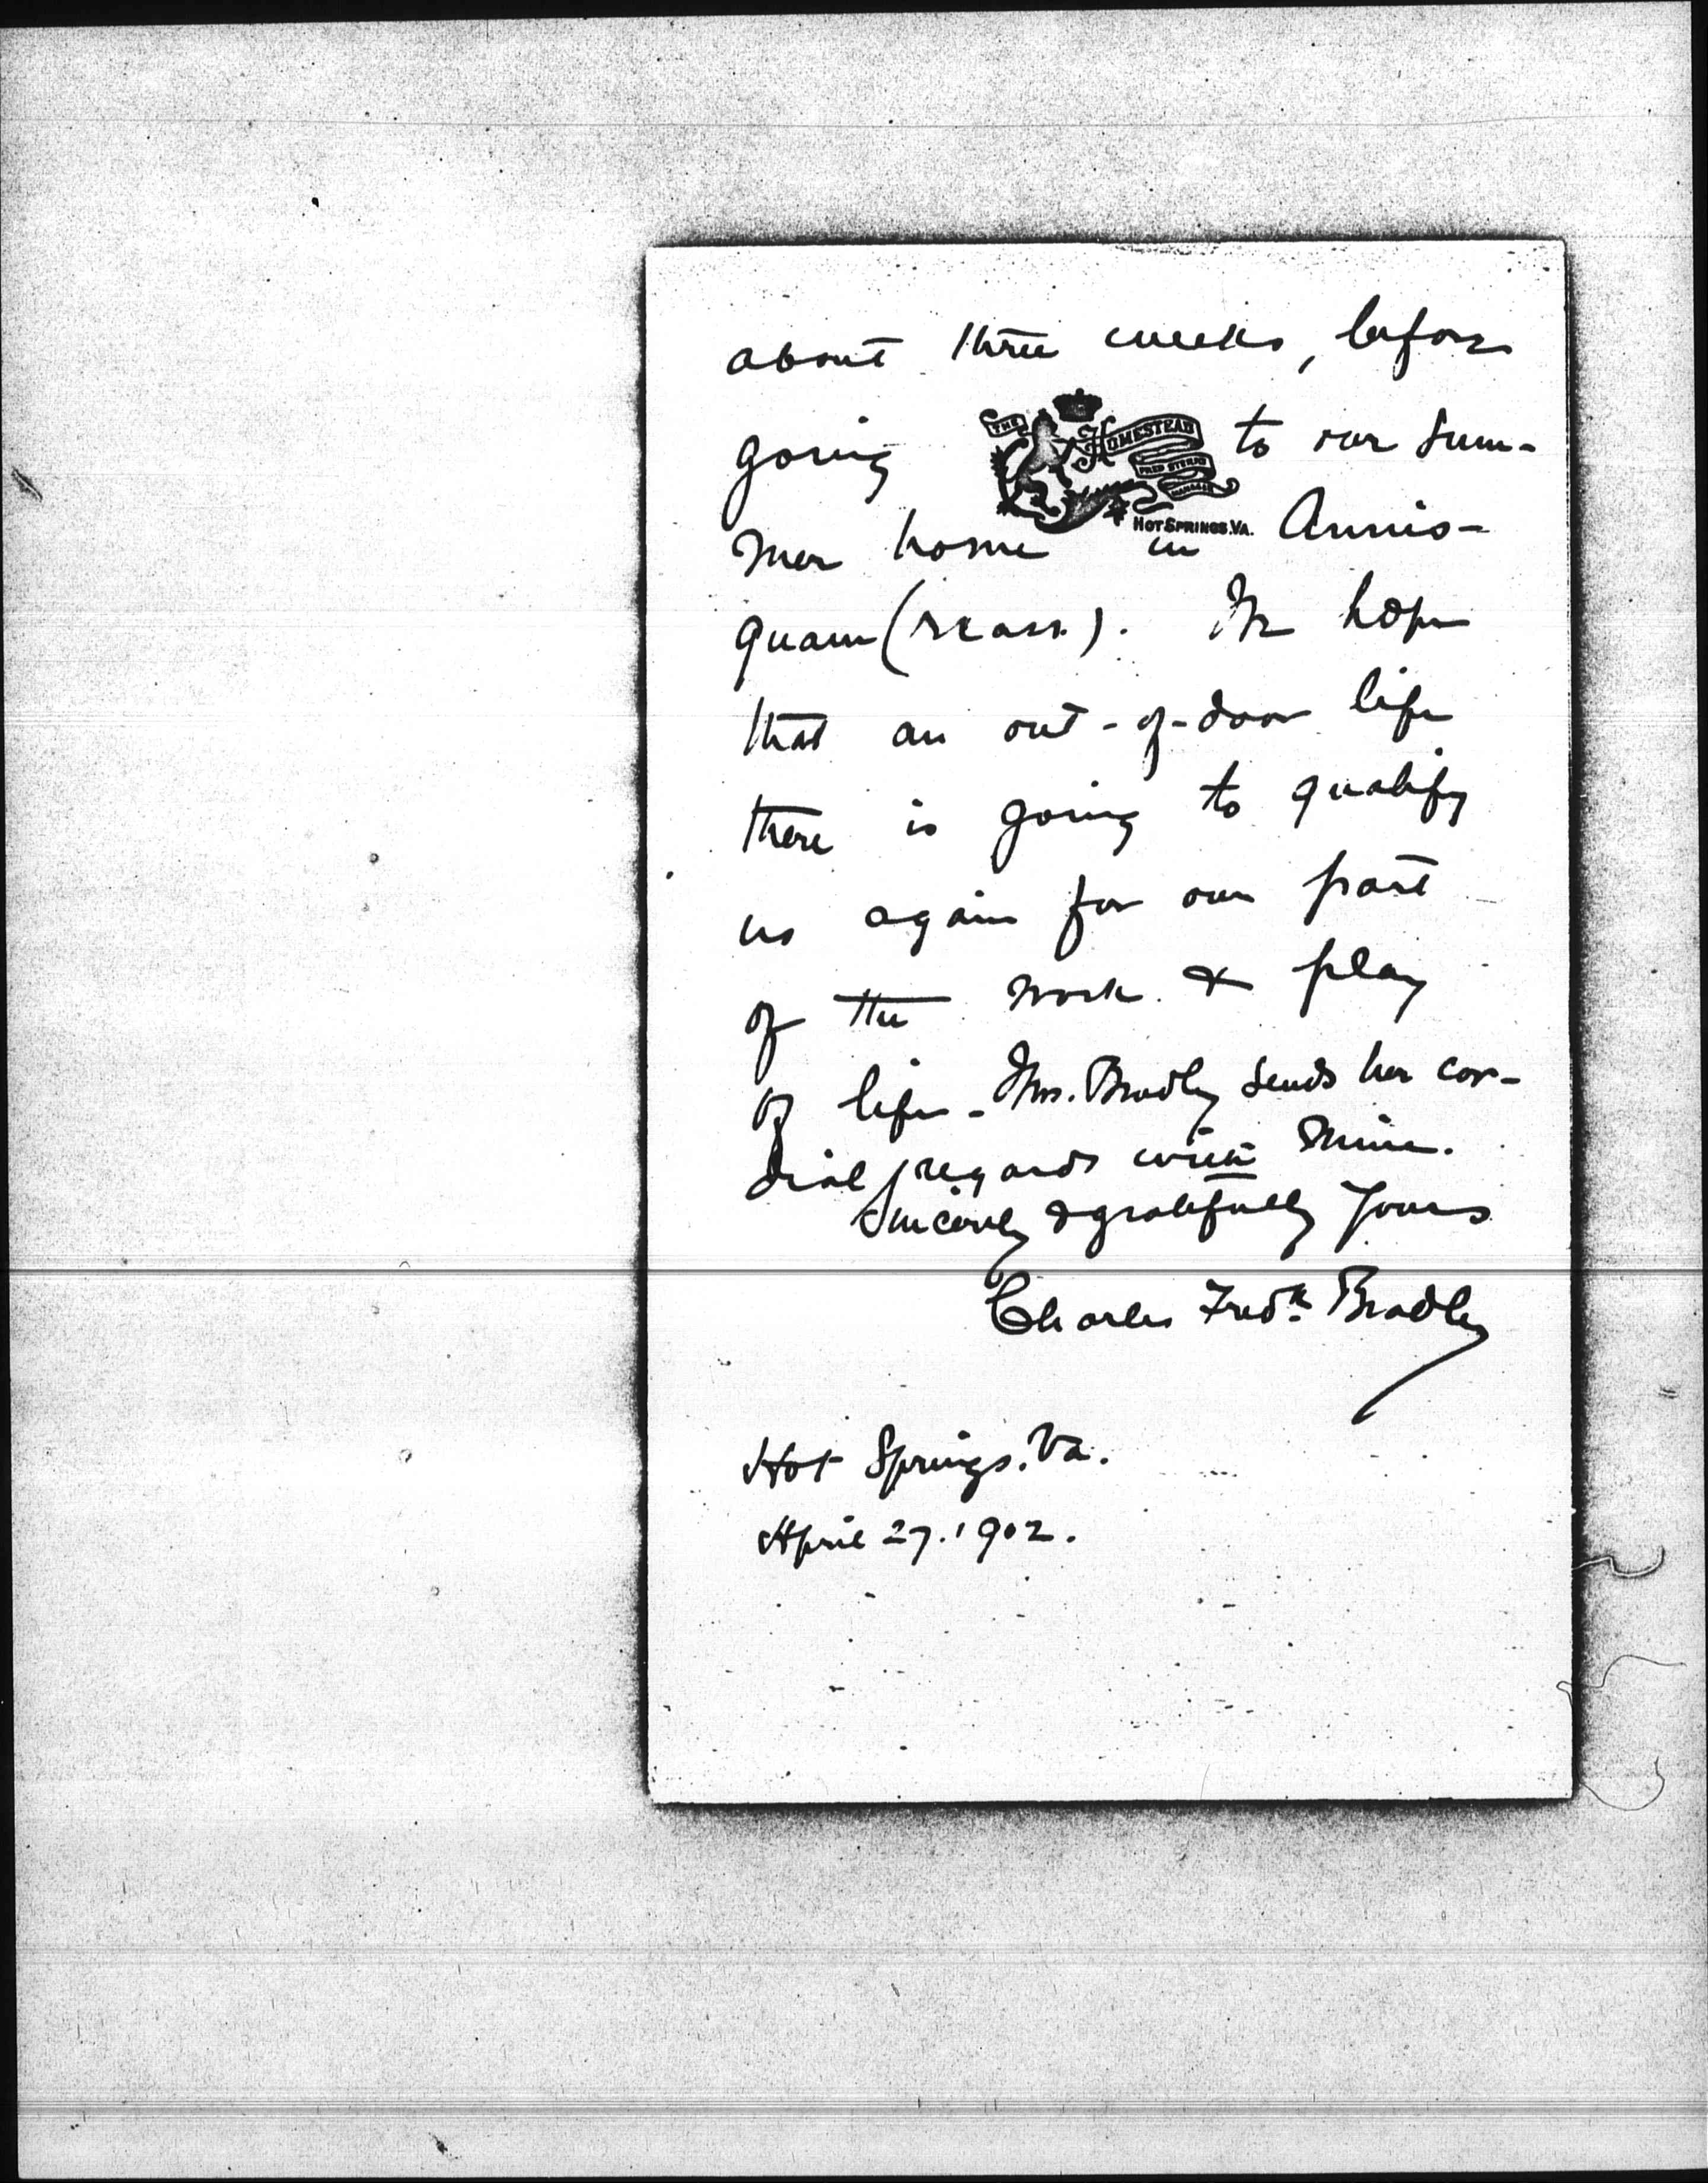 about three weeks, before
going to our Sum-
THE HOMESTEAD
FRED STERRY
MANAGER
HOT SPRINGS. VA.
mer home in Annis-
quam (Mass.). We hope
that an out-of-door life
there is going to qualify
us again for our part
of the work & play
of life - Mrs. Bradley sends her cor-
dial regards with mine.
Sincerely & gratefully Yours
Charles Fredk Bradley
Hot Springs. Va.
April 27. 1902.